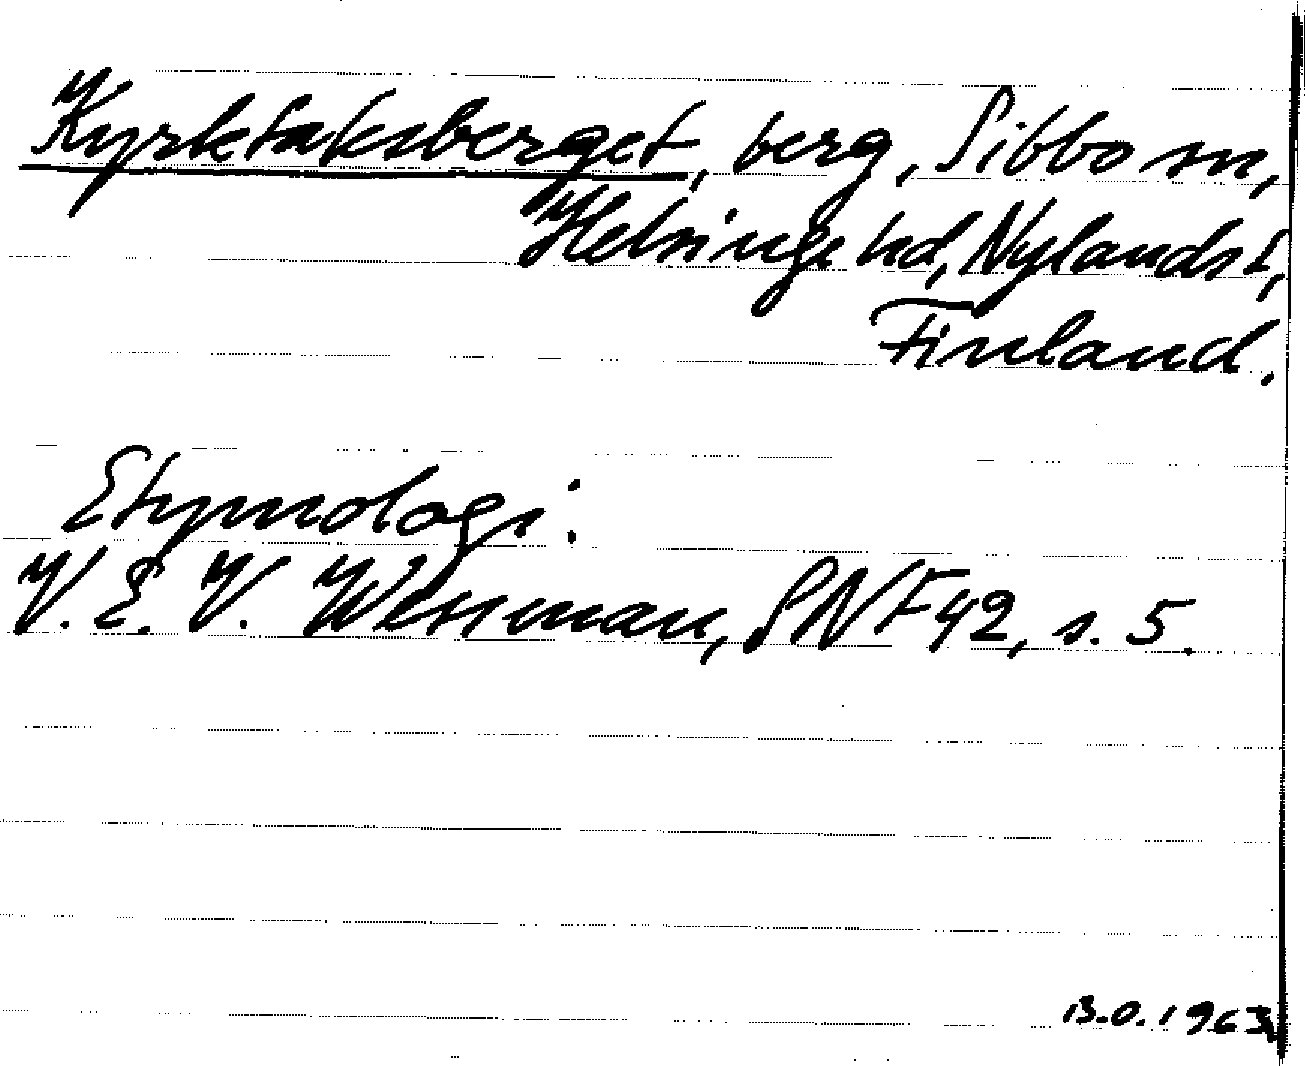 Kyrktaksberget, berg, Sibbo sn,
Helsinge hd, Nylands l,
Finland.
Etymologi:
V. E. V. Wessman, SNF 42, s. 5.
B.O. 1963